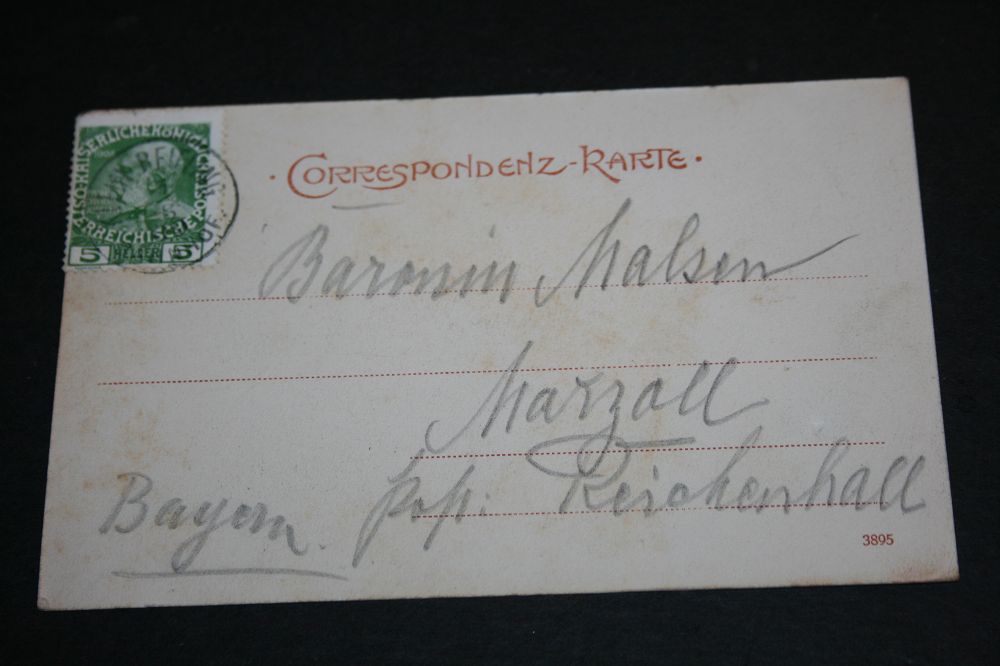 KAISERLICHE KÖNIGLICHE
ÖSTERREICHISCHE POST
5 HELLER 5
· CORRESPONDENZ-KARTE ·
Baronin Malsen
Marzoll
Post: Reichenhall
Bayern.
3895